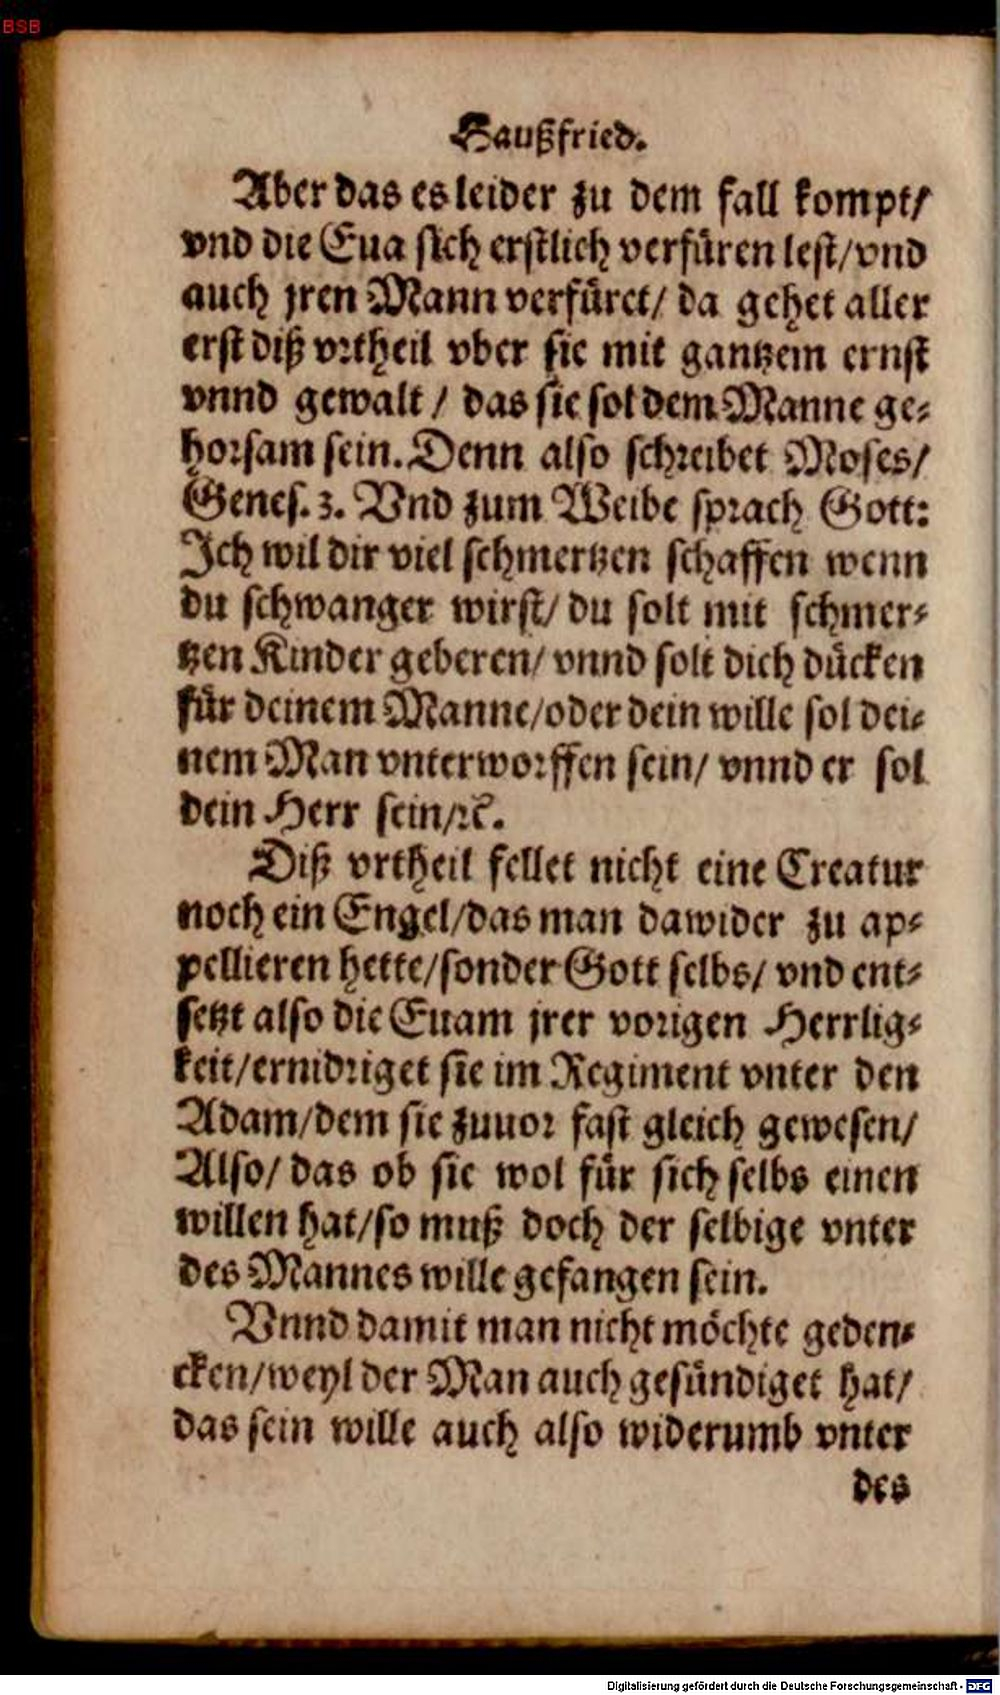 BSB
Haußfried.
Aber das es leider zu dem fall kompt/
vnd die Eua sich erstlich verfüren lest/vnd
auch jren Mann verfüret/ da gehet aller
erst diß vrtheil vber sie mit gantzem ernst
vnnd gewalt / das sie sol dem Manne ge-
horsam sein. Denn also schreibet Moses/
Genes. 3. Vnd zum Weibe sprach Gott:
Ich wil dir viel schmertzen schaffen wenn
du schwanger wirst/ du solt mit schmer-
tzen Kinder geberen/ vnnd solt dich dücken
für deinem Manne/oder dein wille sol dei-
nem Man vnterworffen sein/ vnnd er sol
dein Herr sein/ꝛc̄.
Diß vrtheil fellet nicht eine Creatur
noch ein Engel/das man dawider zu ap-
pellieren hette/sonder Gott selbs/ vnd ent-
setzt also die Euam jrer vorigen Herrlig-
keit/ernidriget sie im Regiment vnter den
Adam/dem sie zuuor fast gleich gewesen/
Also/ das ob sie wol für sich selbs einen
willen hat/so muß doch der selbige vnter
des Mannes wille gefangen sein.
Vnnd damit man nicht möchte geden-
cken/weyl der Man auch gesündiget hat/
das sein wille auch also widerumb vnter
des
Digitalisierung gefördert durch die Deutsche Forschungsgemeinschaft - DFG